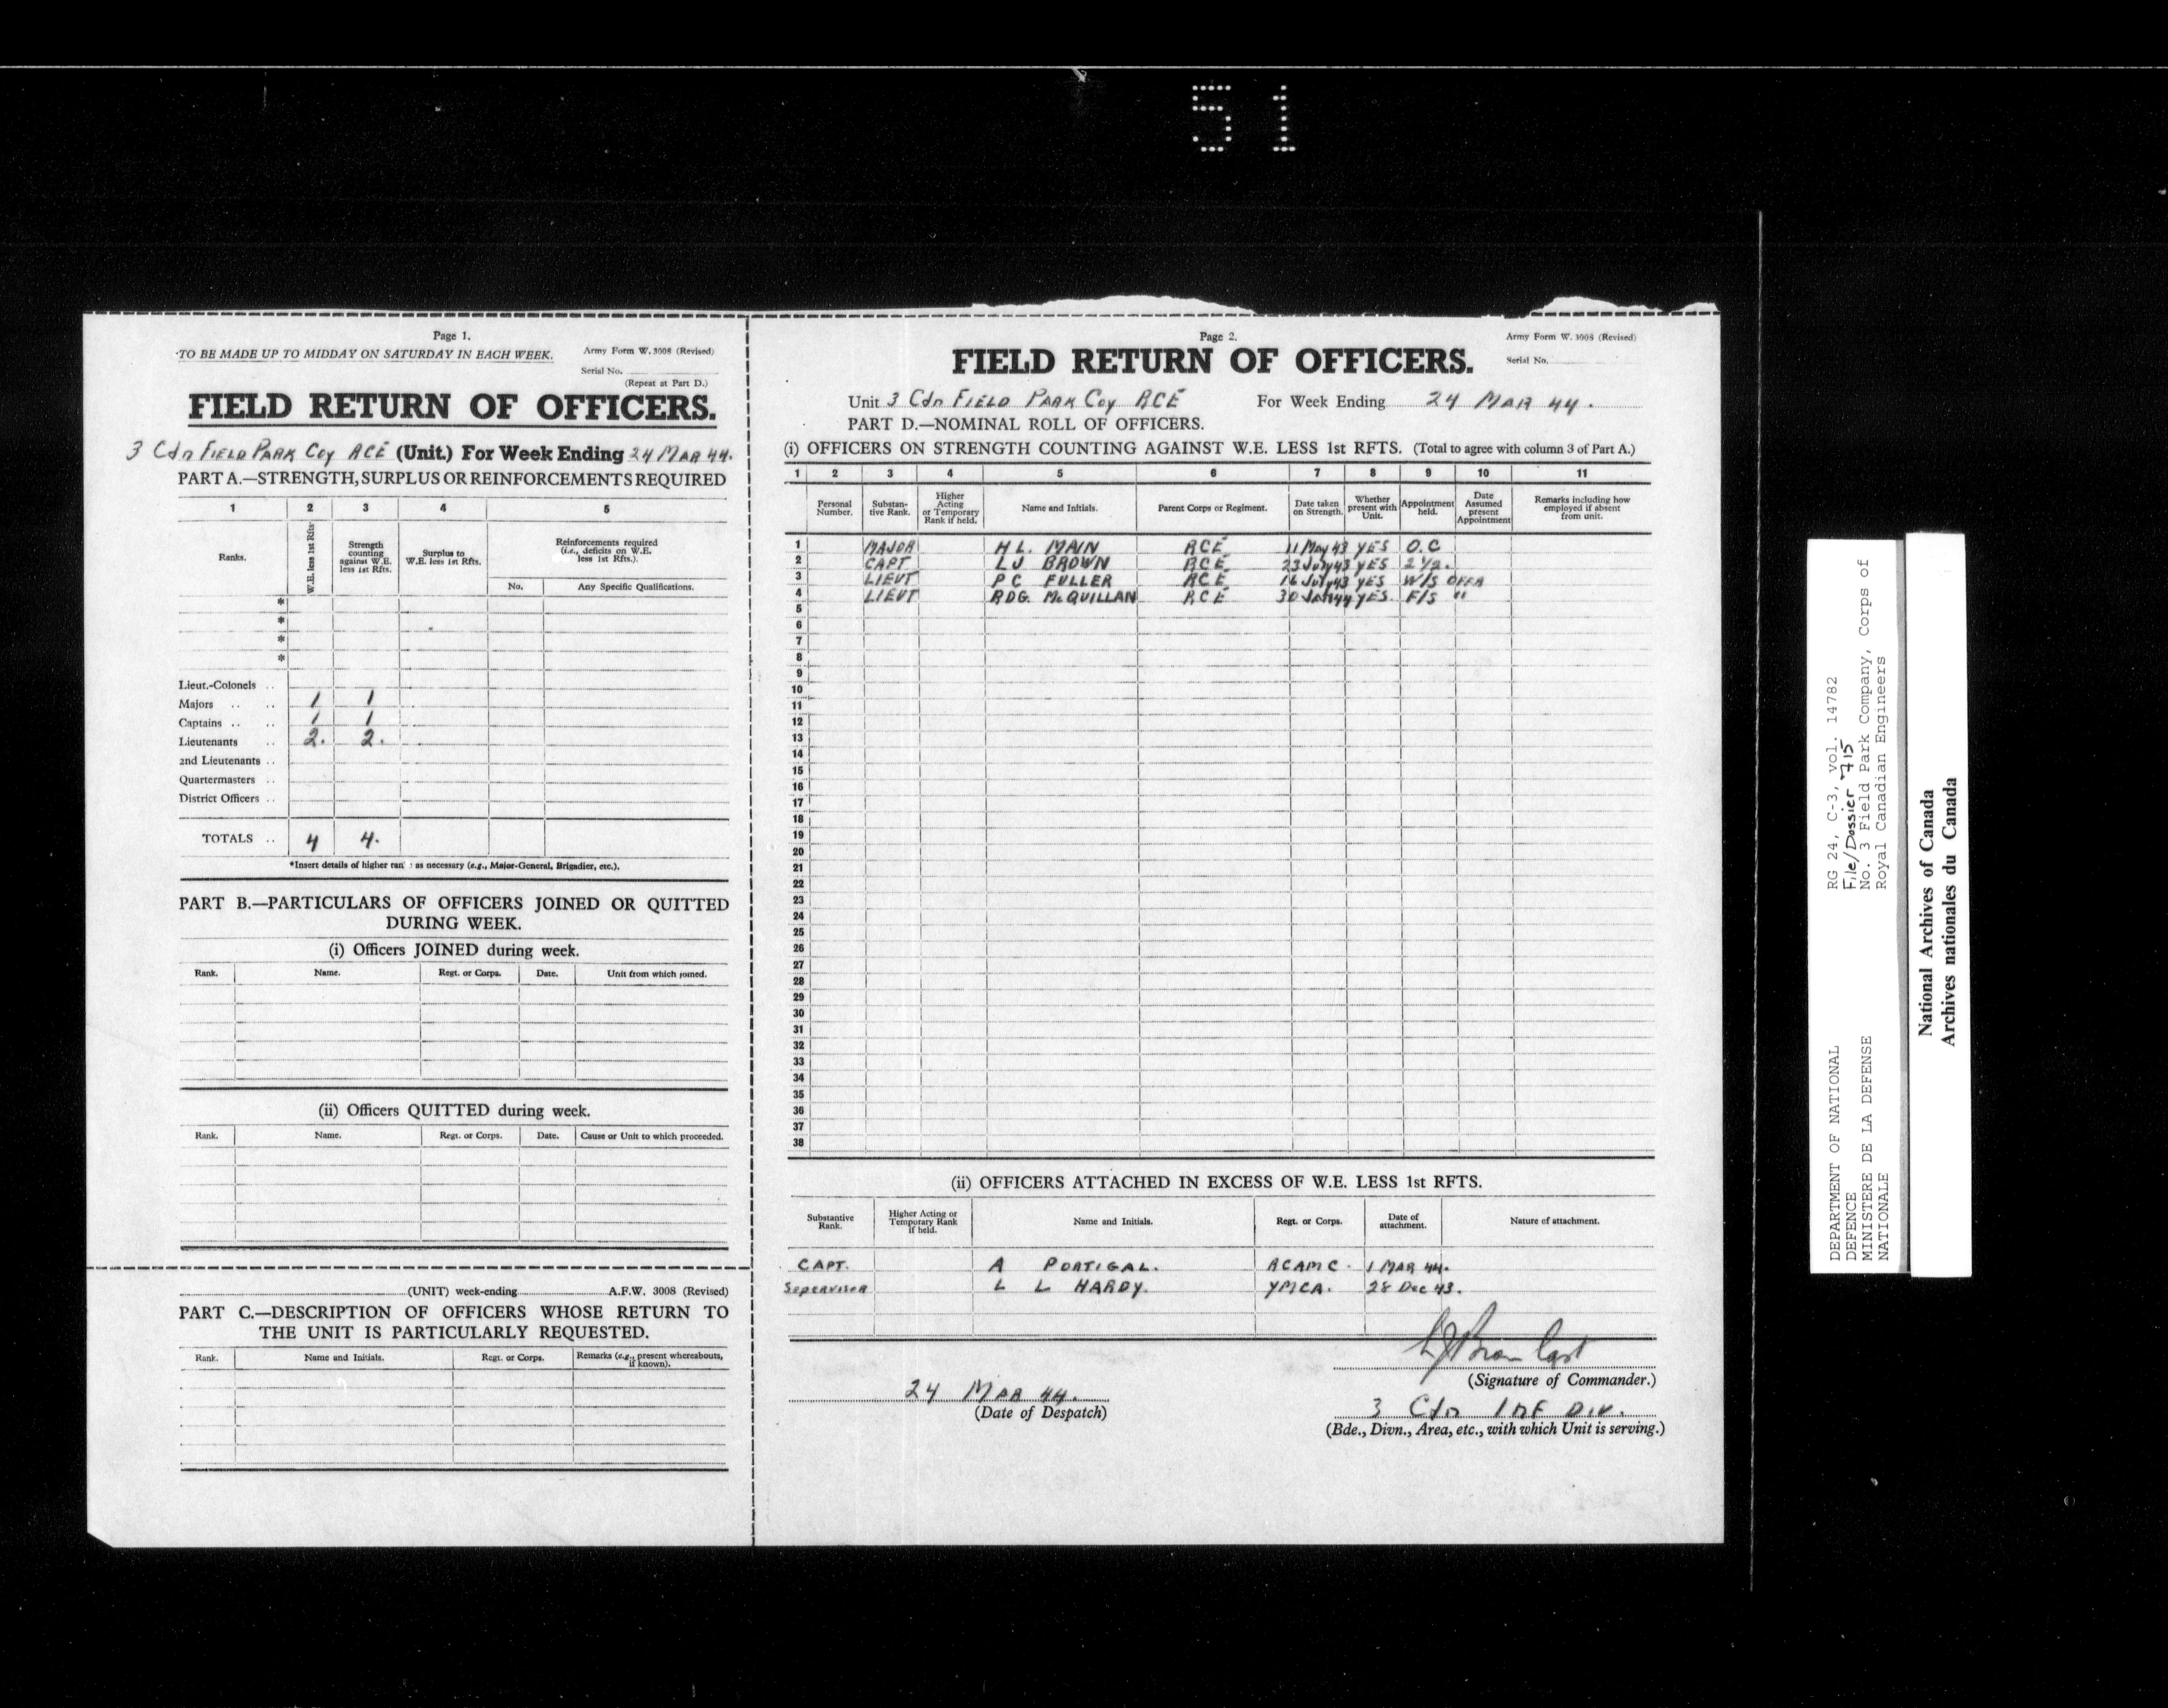 51
Page 1.
TO BE MADE UP TO MIDDAY ON SATURDAY IN EACH WEEK.
Army Form W. 3008 (Revised)
Serial No.
(Repeat at Part D.)
FIELD RETURN OF OFFICERS.
3 Cdn FIELD PARK Coy RCE (Unit.) For Week Ending 24 MAR 44.
PART A.—STRENGTH, SURPLUS OR REINFORCEMENTS REQUIRED
1 2 3 4 5
Ranks.
W.E. less 1st Rfts
Strength counting against W.E. less 1st Rfts.
Surplus to W.E. less 1st Rfts.
Reinforcements required (i.e., deficits on W.E. less 1st Rfts.).
No. Any Specific Qualifications.
*
*
*
*
Lieut.-Colonels ..
Majors .. .. 1 1
Captains .. .. 1 1
Lieutenants .. 2. 2.
2nd Lieutenants ..
Quartermasters ..
District Officers ..
TOTALS .. 4 4.
*Insert details of higher ran as necessary (e.g., Major-General, Brigadier, etc.).
PART B.—PARTICULARS OF OFFICERS JOINED OR QUITTED
DURING WEEK.
(i) Officers JOINED during week.
Rank. Name. Regt. or Corps. Date. Unit from which joined.
(ii) Officers QUITTED during week.
Rank. Name. Regt. or Corps. Date. Cause or Unit to which proceeded.
(UNIT) week-ending A.F.W. 3008 (Revised)
PART C.—DESCRIPTION OF OFFICERS WHOSE RETURN TO
THE UNIT IS PARTICULARLY REQUESTED.
Rank. Name and Initials. Regt. or Corps. Remarks (e.g., present whereabouts, if known).
Page 2.
Army Form W. 3008 (Revised)
FIELD RETURN OF OFFICERS.
Serial No.
Unit 3 Cdn FIELD PARK Coy RCE For Week Ending 24 MAR 44.
PART D.—NOMINAL ROLL OF OFFICERS.
(i) OFFICERS ON STRENGTH COUNTING AGAINST W.E. LESS 1st RFTS. (Total to agree with column 3 of Part A.)
1 2 3 4 5 6 7 8 9 10 11
Personal Number.
Substantive Rank.
Higher Acting or Temporary Rank if held.
Name and Initials.
Parent Corps or Regiment.
Date taken on Strength.
Whether present with Unit.
Appointment held.
Date Assumed present Appointment
Remarks including how employed if absent from unit.
1 MAJOR H L. MAIN RCE 11 May 43 YES O.C
2 CAPT LJ BROWN RCE 23 July 43 YES 2 1/2.
3 LIEUT P C FULLER RCE 16 July 43 YES W/S OFFR
4 LIEUT RDG. McQUILLAN RCE 30 JAN 44 YES. F/S "
5
6
7
8
9
10
11
12
13
14
15
16
17
18
19
20
21
22
23
24
25
26
27
28
29
30
31
32
33
34
35
36
37
38
(ii) OFFICERS ATTACHED IN EXCESS OF W.E. LESS 1st RFTS.
Substantive Rank.
Higher Acting or Temporary Rank if held.
Name and Initials.
Regt. or Corps.
Date of attachment.
Nature of attachment.
CAPT. A PORTIGAL. RCAMC. 1 MAR 44.
Supervisor L L HARDY. YMCA. 28 Dec 43.
LJ Brown Capt
(Signature of Commander.)
24 MAR 44.
(Date of Despatch)
3 Cdn INF DIV.
(Bde., Divn., Area, etc., with which Unit is serving.)
DEPARTMENT OF NATIONAL
DEFENCE
MINISTERE DE LA DEFENSE
NATIONALE
RG 24, C-3, vol. 14782
File/Dossier 715
No. 3 Field Park Company, Corps of
Royal Canadian Engineers
National Archives of Canada
Archives nationales du Canada